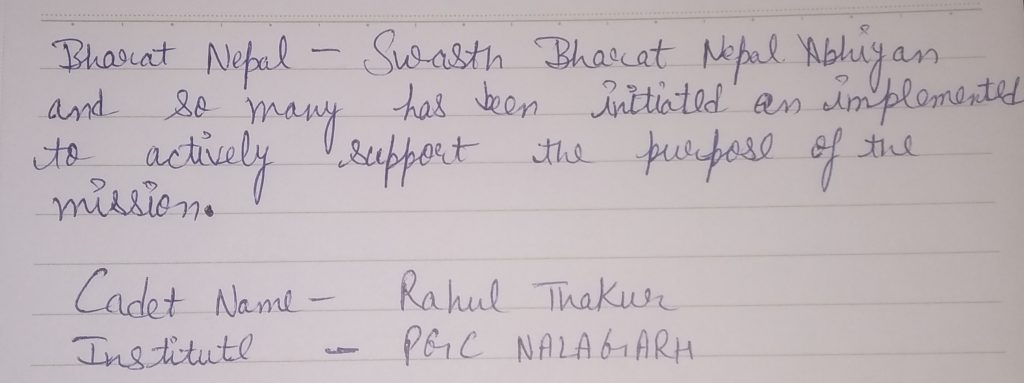 Bharat Nepal - Swasth Bharat Nepal Abhiyan
and so many has been initiated en implemented
to actively support the purpose of the
mission.
Cadet Name - Rahul Thakur
Institute - PGC NALAGARH